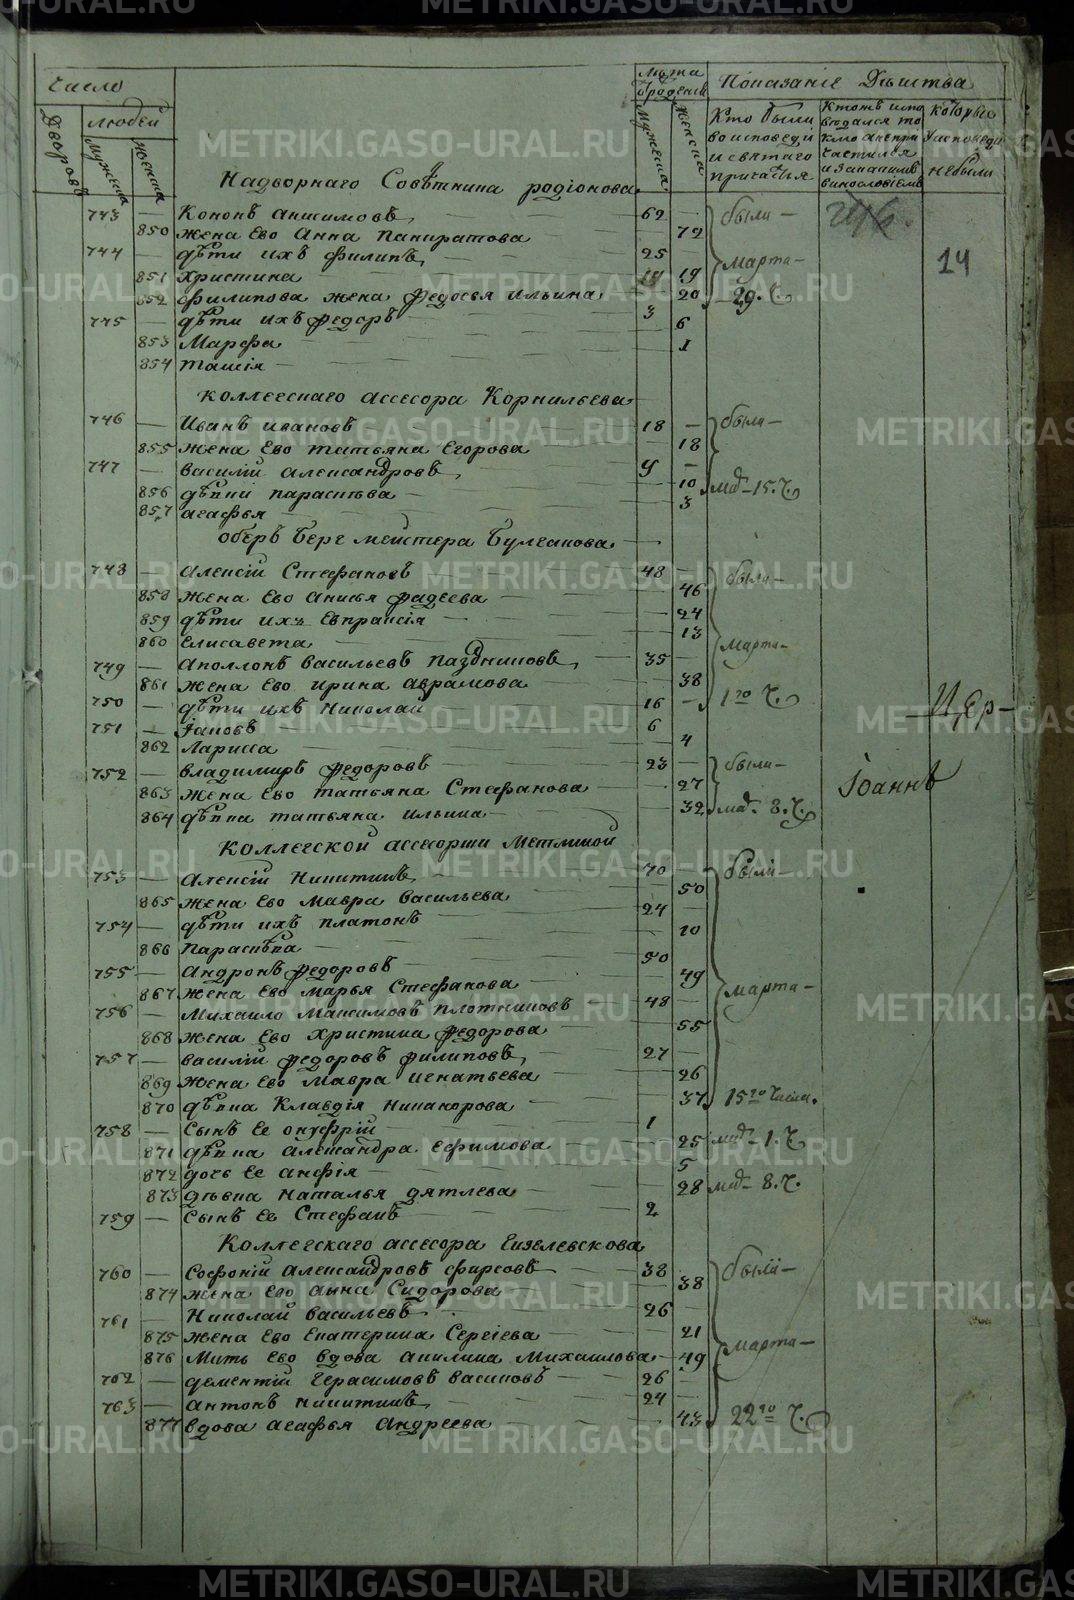 Число
Людей
Дворовъ
Мужеска
Женска
Лѣта
Мужеска
Женска
Показаніе Дѣйства
Кто были
во исповеди
и святаго
причастья
которые
у исповеди
небыли
Надворнаго Совѣтника родіонова
743 — Кононъ анисимовъ 62 — были —
850 жена Ево Анна панкратова — 72
744 — дѣти ихъ филипъ 25 — марта —
851 Христина 19 14
852 филипова жена федосья ильина — 20 29. ч.
745 — дѣти ихъ федоръ 3
853 Марфа 6
854 таисія — 1
коллегскаго ассесора Корнильева
746 — Иванъ ивановъ 18 — были —
855 жена Ево татьяна Егорова 18
747 — василій александровъ 9 —
856 10 15. ч.
857 агафья 3
оберъ Берг мейстера Булгакова
748 — Алексій Стефановъ 48 — были —
858 жена Ево Анисья фадеева — 46
859 дѣти ихъ Евпраксія — 24
860 Елисавета — 13 марта —
749 — Аполлонъ васильевъ паздниковъ 35 —
861 жена Ево ирина аврамова — 38
750 — дѣти ихъ Николай 16 — 1го ч. Цер —
751 — Іаковъ 6
862 Лариса 4
752 — владимиръ федоровъ 23 — были —
863 жена Ево татьяна Стефанова 27 Іоаннъ
864 дѣвка татьяна ильина 32 8. ч.
Коллегской ассесорши Метлиной
753 — Алексій Никитинъ 70 — были —
865 жена Ево Мавра васильева — 50
754 — дѣти ихъ платонъ 24 —
866 Парасковья — 10
755 — Андронъ федоровъ 50
867 жена Ево Марья Стефанова — 49 марта —
756 — Михаило Максимовъ плотниковъ 48 —
868 жена Ево Христина федорова — 55
757 — василій федоровъ филиповъ 27 —
869 жена Ево Мавра игнатьева — 26
870 дѣвка Клавдія Никанорова — 37 15го числа.
758 — Сынъ Ее онуфрій 1
871 дѣвка александра Ефимова — 25 1. ч.
872 дочь Ее анфія 5
873 дѣвка наталья дятлева — 28 8. ч.
759 — Сынъ Ее Стефанъ 2
Коллегскаго ассесора
760 — Софоній александровъ фирсовъ 38 были —
874 жена Ево анна Сидорова 38
761 — Николай васильевъ 26 —
875 жена Ево Екатерина Сергіева — 21
876 Мать Ево вдова акилина Михаилова — 49 марта —
762 — дементій Герасимовъ васиновъ 26 —
763 — антонъ никитинъ 24
877 вдова агафья Андреева — 43 22го ч.
METRIKI.GASO-URAL.RU